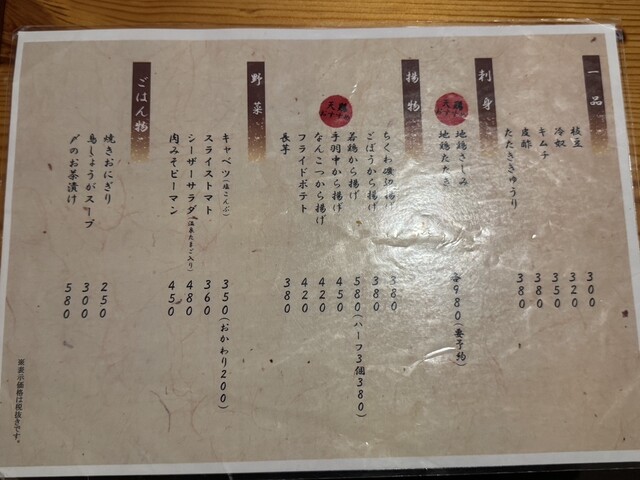 一品
枝豆 300
冷奴 320
キムチ 350
皮酢 380
たたききゅうり 380
刺身
地鶏さしみ
地鶏たたき
各980(要予約)
揚物
ちくわ磯辺揚げ 380
ごぼうから揚げ 380
若鶏から揚げ 580(ハーフ3個380)
手羽中から揚げ 450
なんこつから揚げ 420
フライドポテト 420
長芋 380
野菜
キャベツ(塩こんぶ) 350(おかわり200)
スライストマト 360
シーザーサラダ(温泉たまご入り) 480
肉みそピーマン 450
ごはん物
焼きおにぎり 250
鳥しょうがスープ 300
〆のお茶漬け 580
※表示価格は税抜きです。